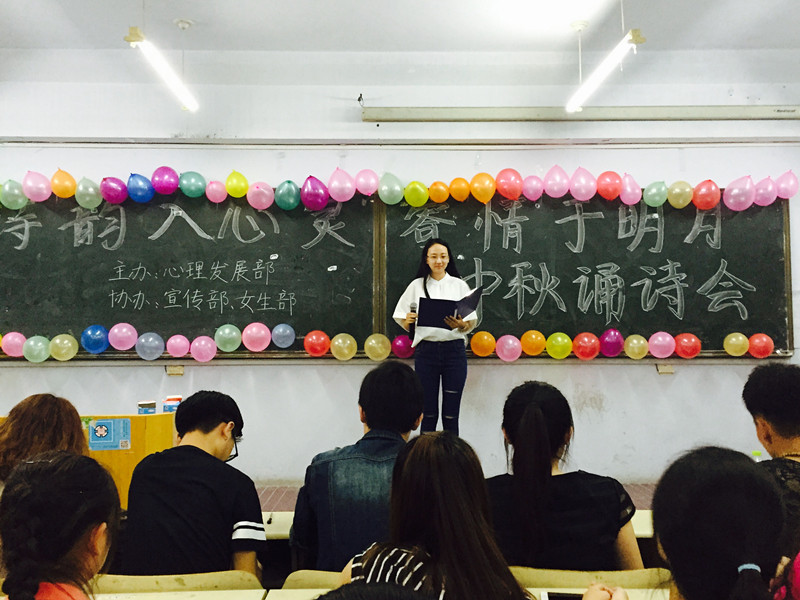 诗韵入心灵 寄情于明月
主办：心理发展部
协办：宣传部、女生部
中秋诵诗会